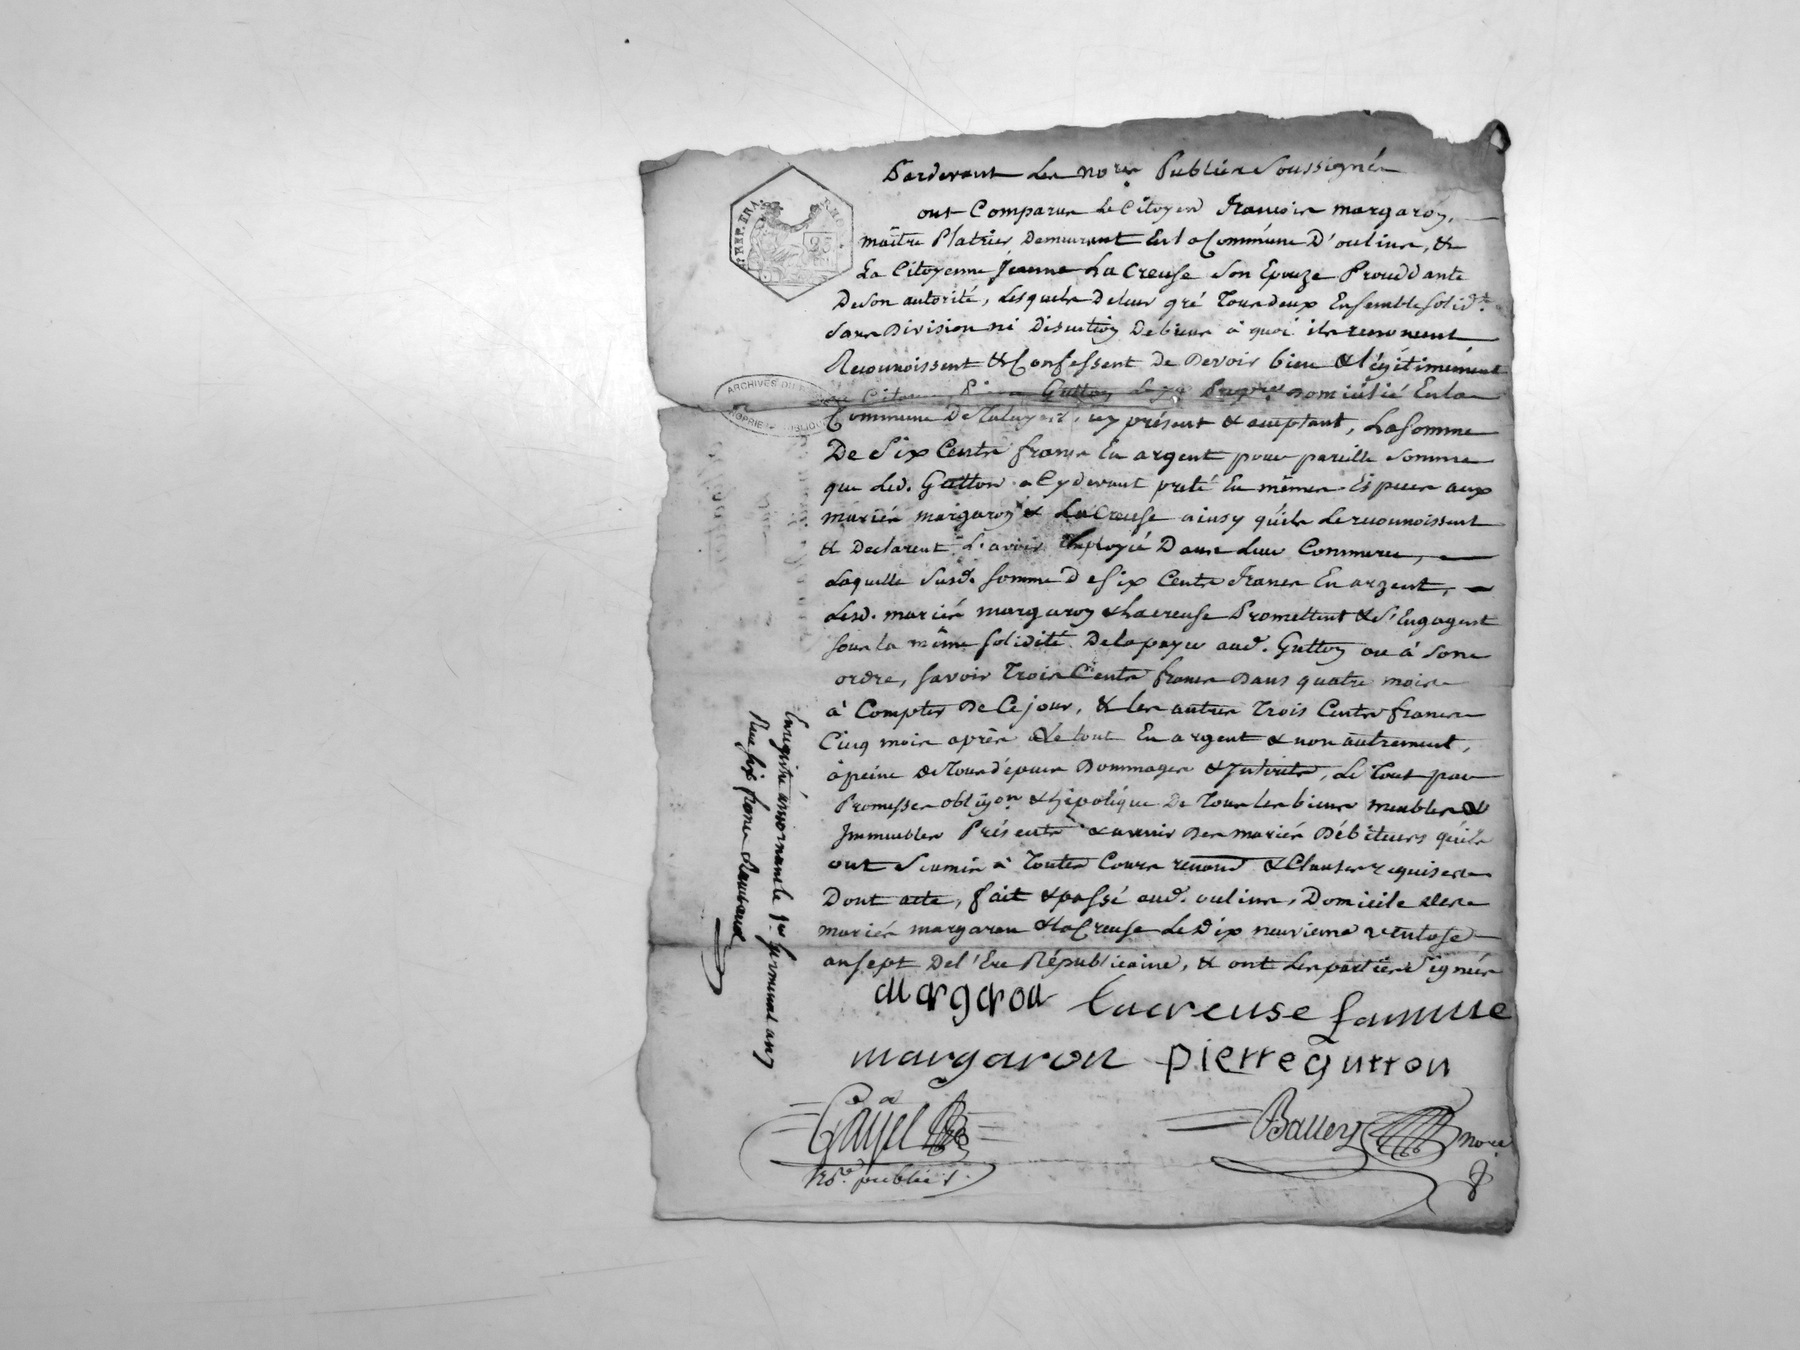 Pardevant Les no.res Publics Soussignés
ont Comparus Le Citoyen François margaron,
maître Platrier Demeurant En la Commune D'oulins, &
La Citoyenne Jeanne La Creuse Son Epouze Procédante
De Son autorité, Lesquels De leur gré Tous deux Ensemble solid.t
Sans Division ni Discution De biens à quoi ils renoncent
Reconnoissent & Confessent De Devoir bien & légitimement
Citoyen Gutton Domicilié En la
Commune De Taluyers, icy présent & acceptant, La Somme
De Six Cents francs En argent pour pareille Somme
que Led. Gutton a Cy devant preté En mêmes Espèces aux
mariés margaron & La Creuse ainsy qu'ils Le reconnoissent
& Declarent L'avoir Employé Dans Leur Commerce,
Laquelle Susd. Somme De Six Cents francs En argent,
Lesd. mariés margaron & Lacreuse Promettent & S'Engagent
sous la même solidité De la payer aud. Gutton ou à Son
ordre, Savoir Trois Cents francs Dans quatre mois
à Compter De Ce jour, & les autres Trois Cents francs
Cinq mois après & Le tout En argent & non autrement,
à peine De Tous dépens Dommages & Interets, Le Tout par
Promesses obligon. & hipotéque De Tous Les biens meubles &
Immeubles Présents & avenir Des mariés Débiteurs qu'ils
ont Soumis à Toutes Cours renond & Clauses requises
Dont acte, fait & passé aud. oulins, Domicile Des
mariés margaron & La Creuse Le Dix neuvieme ventose
an sept De l'Ere Républicaine, & ont Les parties Signés
margaron lacreuse famme
margaron pierre gutton
Gayet
no.re public
Balley no.re
Enregistré à le 1er germinal an 7
Reçu six francs
REP. FRA.
RHO
25
ARCHIVES DU
PROPRIETE PUBLIQUE